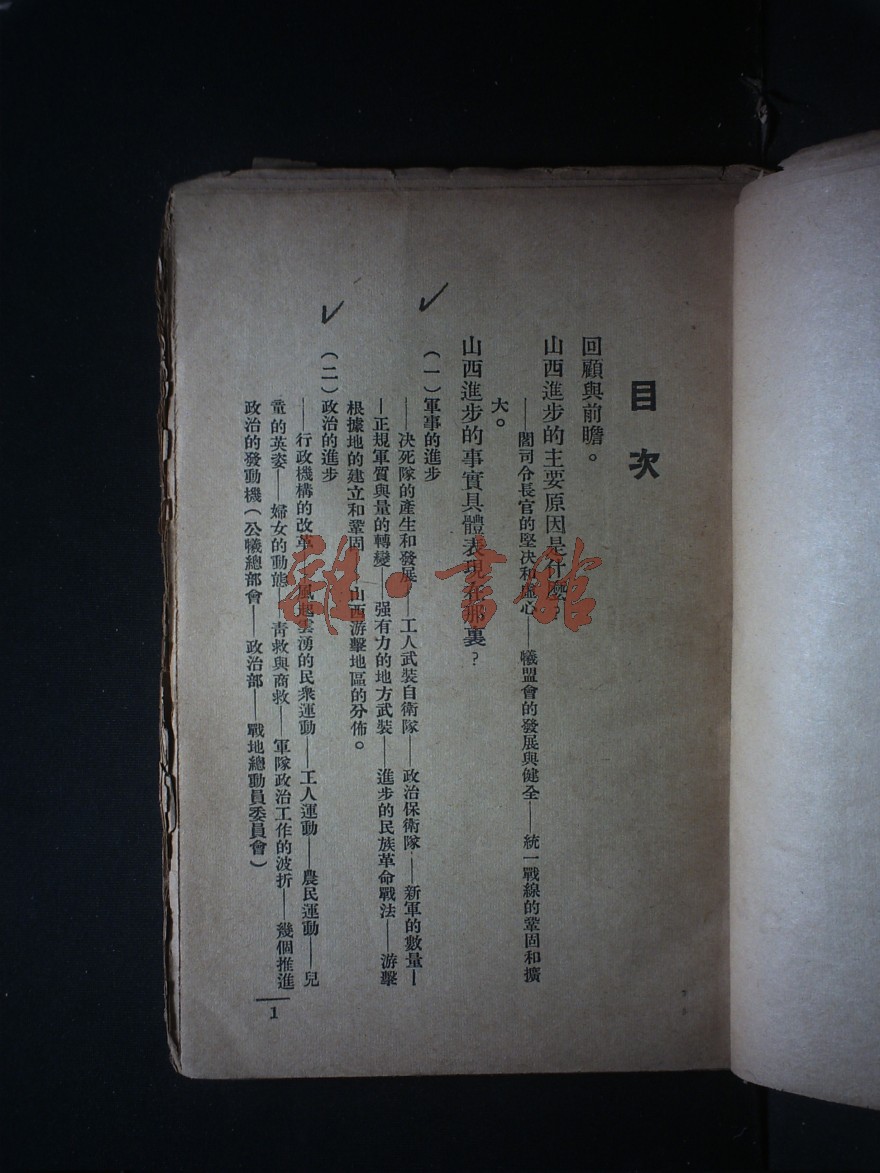 目次
回顧與前瞻。
山西進步的主要原因是什麼？
——閻司令長官的堅決和虛心——犧盟會的發展與健全——統一戰線的鞏固和擴
大。
山西進步的事實具體表現在那裏？
（一）軍事的進步
——決死隊的產生和發展——工人武裝自衛隊——政治保衛隊——新軍的數量—
—正規軍質與量的轉變——强有力的地方武裝——進步的民族革命戰法——游擊
根據地的建立和鞏固——山西游擊地區的分佈。
（二）政治的進步
——行政機構的改革——風起雲湧的民衆運動——工人運動——農民運動——兒
童的英姿——婦女的動態——靑救與商救——軍隊政治工作的波折——幾個推進
政治的發動機（公犧總部會——政治部——戰地總動員委員會）
1
雜·書館